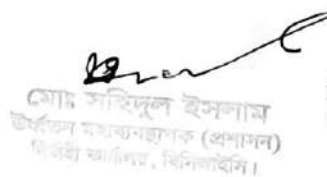 মোঃ সহিদুল ইসলাম
উর্ধ্বতন মহাব্যবস্থাপক (প্রশাসন)
নির্বাহী কার্যালয়, বিসিআইসি।